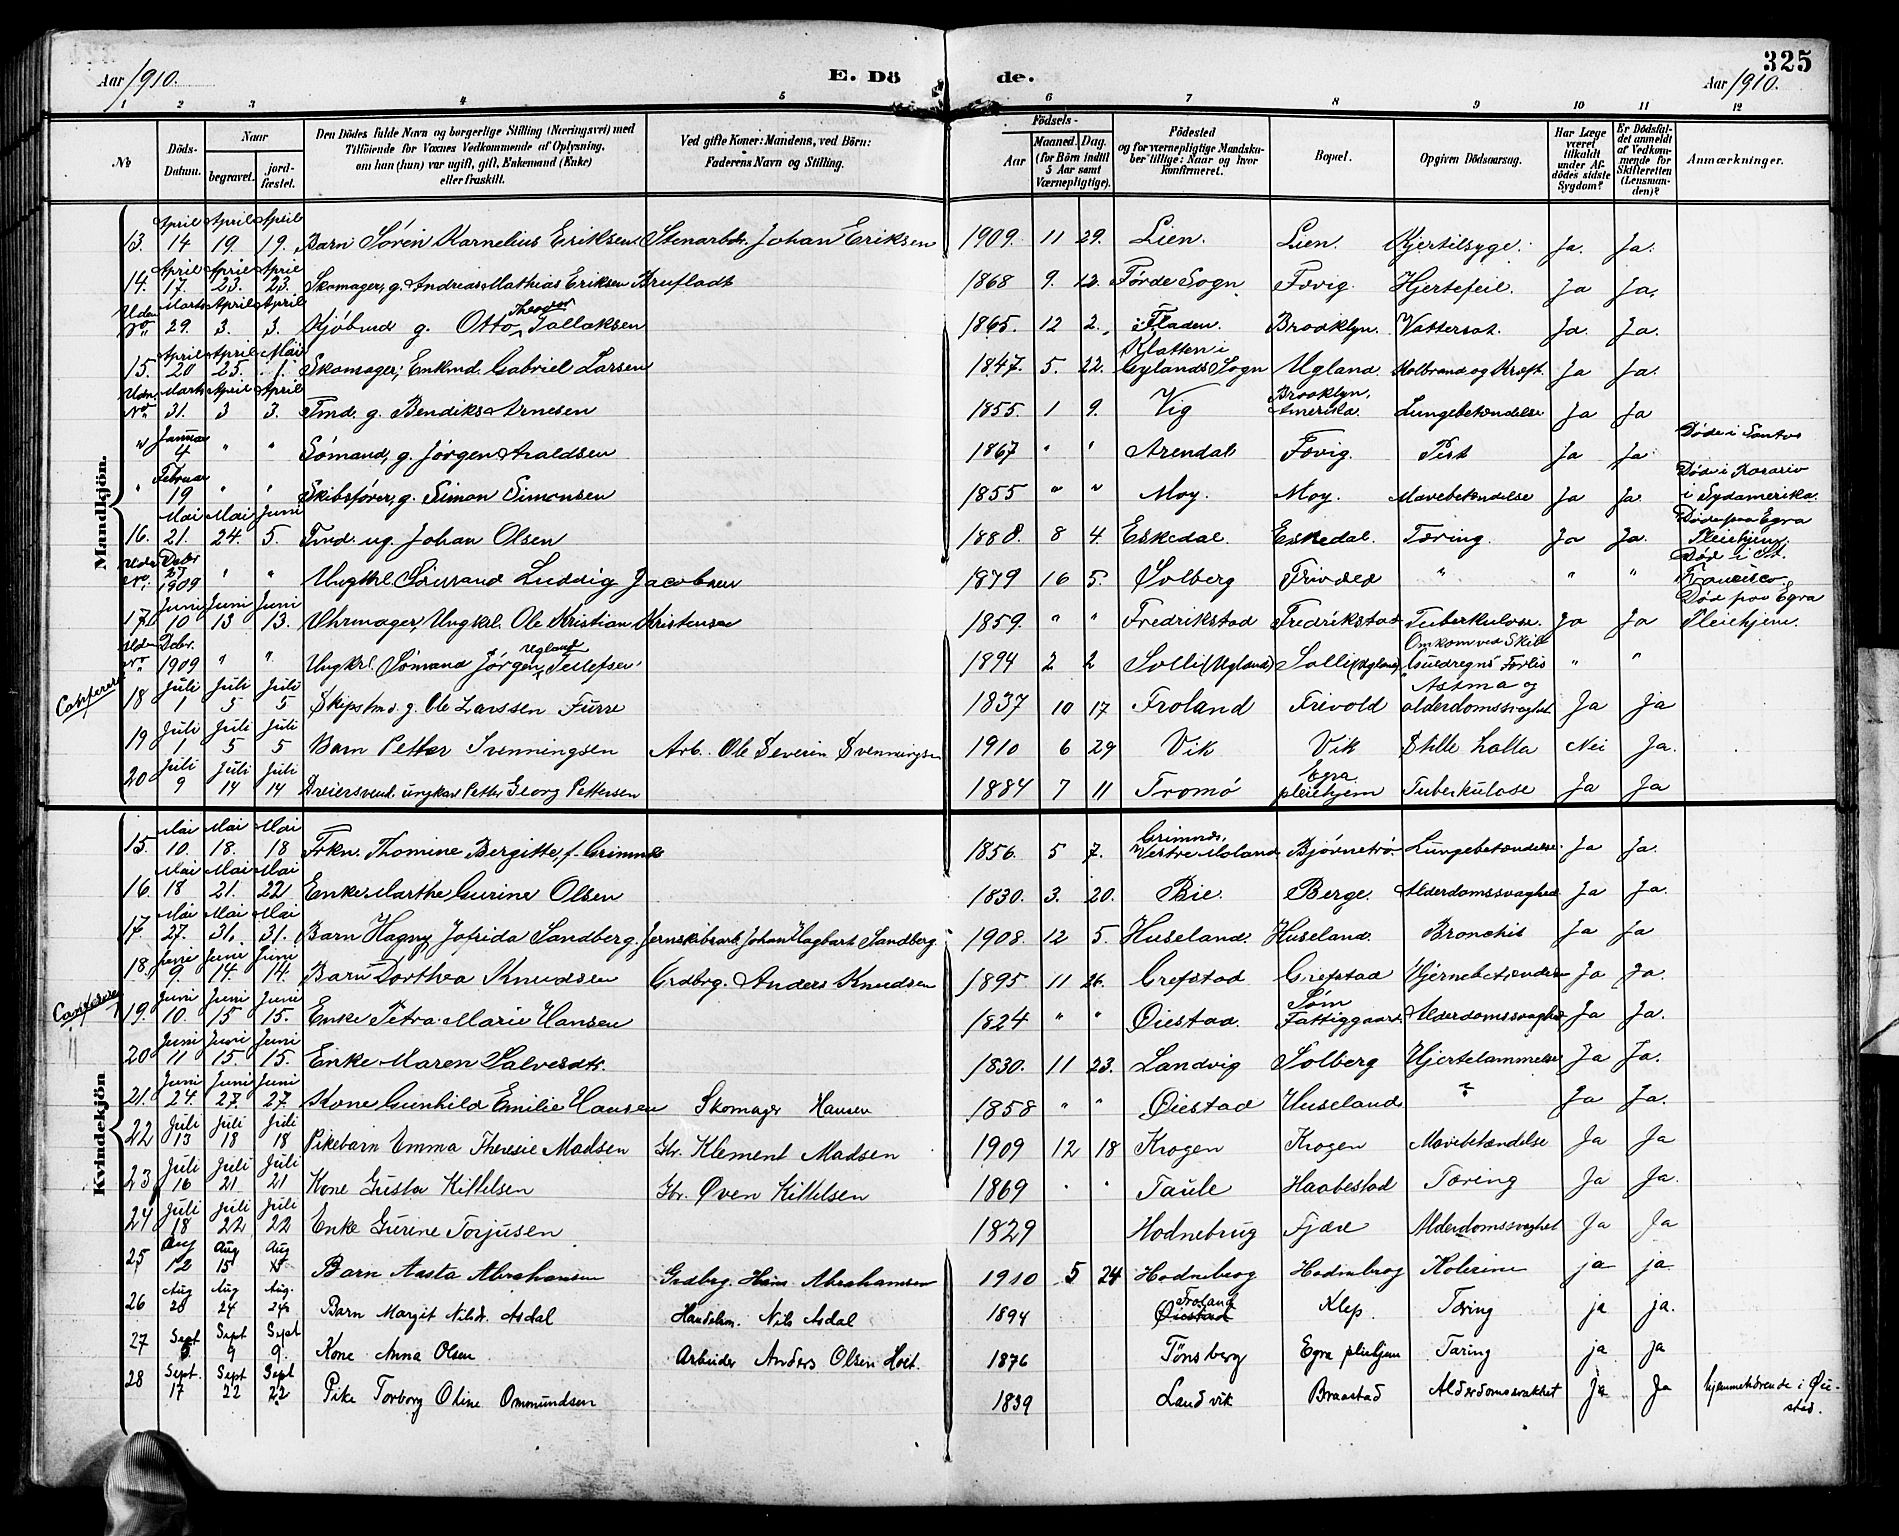 325
Aar 1910. E. Dö de. Aar 1910.
1 2 3 4 5 6 7 8 9 10 11 12
No Döds-Datum. Naar begravet. jord-fæstet. Den Dödes fulde Navn og borgerlige Stilling (Næringsvei) med Tilföiende for Voxnes Vedkommende af Oplysning, om han (hun) var ugift, gift, Enkemand (Enke) eller fraskilt. Ved gifte Koner: Mandens, ved Börn: Faderens Navn og Stilling. Födsels- Aar Maaned. Dag. (for Börn indtil 5 Aar samt Værnepligtige). Födested og for værnepligtige Mandskaber tillige: Naar og hvor konfirmeret. Bopæl. Opgiven Dödsaarsag. Har Læge været tilkaldt under Afdödes sidste Sygdom? Er Dödsfaldet anmeldt af Vedkommende for Skifteretten (Lensmanden)? Anmærkninger.
Mandkjön.
13. April 14 April 19. April 19. Barn Sören Kornelius Eriksen. Stenarbdr. Johan Eriksen 1909. 11 29. Lien. Lien. Kjertilsyge. Ja. Ja.
14. April 17. April 23. April 23. Skomager, g. Andreas Mathias Eriksen Brufladt 1868 9. 12. Förde Sogn Fævig. Hjertefeil. Ja Ja.
Uden No. Marts 29. April 3. April 3. Kjöbmd g. Otto Theodor Tallaksen 1865. 12 2. i Fladen. Brooklyn. Vattersot. Ja. Ja.
15. April 20 April 25. Mai 1. Skomager; Enkmd. Gabriel Larsen 1847. 5. 22. Klatten i Gylands Sogn Ugland. Kolbrand og Kræft. Ja Ja.
Uden No. Marts 31. April 3 April 3. Tmd. g. Bendiks Arnesen 1855. 1 9. Vig Brooklyn, Amerika. Lungebetændelse Ja Ja
" Januar 4 " " Sömand, g. Jörgen Aroldsen 1867 " " Arendal Fævig. Pest Ja Ja Döde i Santos
" Februar 19 " " Skibsförer, g. Simon Simonsen 1855 " " Moy. Moy. Mavebetændelse Ja Ja. Död i Rosario i Sydamerika.
16. Mai 21. Mai 24. Juni 5. Tmd. ug. Johan Olsen 1888. 8 4. Eskedal. Eskedal. Tæring. Ja Ja. Döde paa Egra Pleiehjem.
Uden No. Decbr 27 1909 " " Ungkrl. Sömand Ludvig Jacobsen 1879 16 5. Solberg Frivold " " " Död i St. Francisco.
17. Juni 10 Juni 13 Juni 13. Uhrmager, Ungkrl. Ole Kristian Kristensen 1859. " " Fredrikstad Fredrikstad Tuberkulose. Ja Ja Död paa Egra Pleiehjem.
Uden No Decbr. 1909 " " Ungkrl. Sömand Jörgen Ugland Tellefsen 1894 2 2 Solli (Ugland) Solli (Ugland) Omkom ved Skib Guldregns Forlis " "
18 Juli 1 Juli 5 Juli 5 Skipstmd. g. Ole Larssen Furre 1837 10 17 Froland Frevold Astma og alderdomssvaghet Ja Ja
19 Juli 1 Juli 5 Juli 5 Barn Petter Svenningsen Arb. Ole Severin Svenningsen 1910 6 29 Vik Vik Stille Lalla Nei Ja.
20 Juli 9 Juli 14 Juli 14 Dreiersvend. ungkar Petter Georg Pettersen 1884 7 11 Tromö Egra pleiehjem Tuberkulose Ja Ja
Kvindekjön
15. Mai 10. Mai 18. Mai 18 Frkn. Thomine Bergitte, f. Grimnes 1856. 5 7. Grimnes, Vestre Moland Björnetrö. Lungebetændelse. Ja Ja.
16. Mai 18 Mai 21. Mai 22 Enke Marthe Gurine Olsen 1830. 3. 20. Bie. Berge. Alderdomssvaghed Ja Ja.
17. Mai 27. Mai 31. Mai 31. Barn Hagny Jofrida Sandberg. Jernskibsarb. Johan Hagbart Sandberg. 1908. 12 5. Huseland. Huseland. Bronchit Ja Ja
18. Juni 9 Juni 14. Juni 14. Barn Dorthea Knudsen Grdbrg. Anders Knudsen 1895 11 26. Grefstad Grefstad Hjernebetændelse Ja Ja.
19. Juni 10. Juni 15 Juni 15. Enke Petra Marie Hansen 1824 " " Öiestad. Söm Fattiggaard. Alderdomssvaghed Ja Ja.
20 Juni 11 Juni 15 Juni 15. Enke Maren Salvesdtr. 1830. 11 23. Landvig Solberg Hjertelammelse Ja Ja.
21. Juni 24. Juni 27. Juni 27. Kone Gunhild Emilie Hansen Skomager Hansen 1858 " " Öiestad Huseland ? Ja Ja.
22 Juli 13 Juli 18 Juli 18 Pikebarn Emma Theresie Madsen Gbr. Klement Madsen 1909 12 18 Krogen Krogen Mavebetændelse Ja Ja
23 Juli 16 Juli 21 Juli 21 Kone Gusta Kittelsen Gbr. Öven Kittelsen 1869 " " Taule Haabestad Tæring Ja Ja.
24 Juli 18 Juli 22 Juli 22 Enke Gurine Torjusen 1829 Hodnebrug Fjære Alderdomssvaghet Ja Ja
25 Aug 12 Aug 15 Aug 15 Barn Aasta Abrahamsen Grdbrg. Hans Abrahamsen 1910 5 24 Hodnebrog Hodnebrog Kolerine ja ja
26 Aug 20 Aug 24 Aug. 24 Barn Margit Nilsdt. Asdal Handelsm. Nils Asdal 1894 Froland Öiestad Klep. Tæring ja ja.
27 Sept 5 Sept 9 Sept 9. Kone Anna Olsen Arbeider Anders Olsen Holt. 1876 Tönsberg Egra pleihjem Tæring ja ja
28 Sept. 17 Sept 22 Sept 22 Pike Torborg Oline Ommundsen 1839 Landvik Braastad Alderdomssvakhet Ja Ja hjemmehörende i Öiestad.